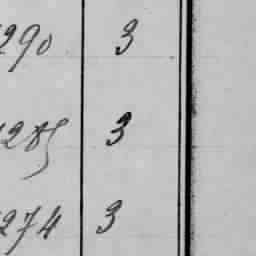 290 3
285 3
274 3